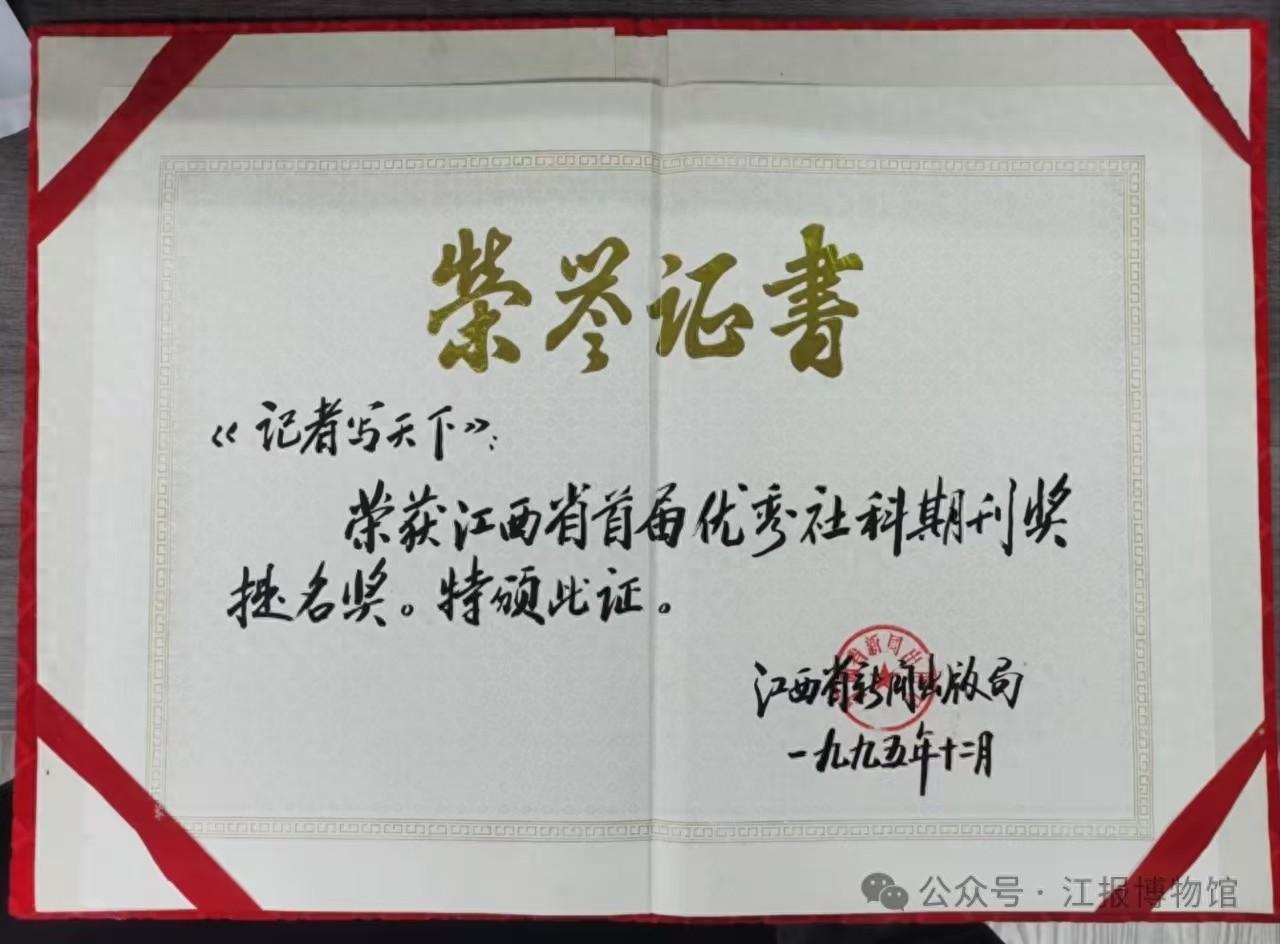 荣誉证书
《记者写天下》：
荣获江西省首届优秀社科期刊奖
提名奖。特颁此证。
江西省新闻出版局
一九九五年十二月
公众号·江报博物馆